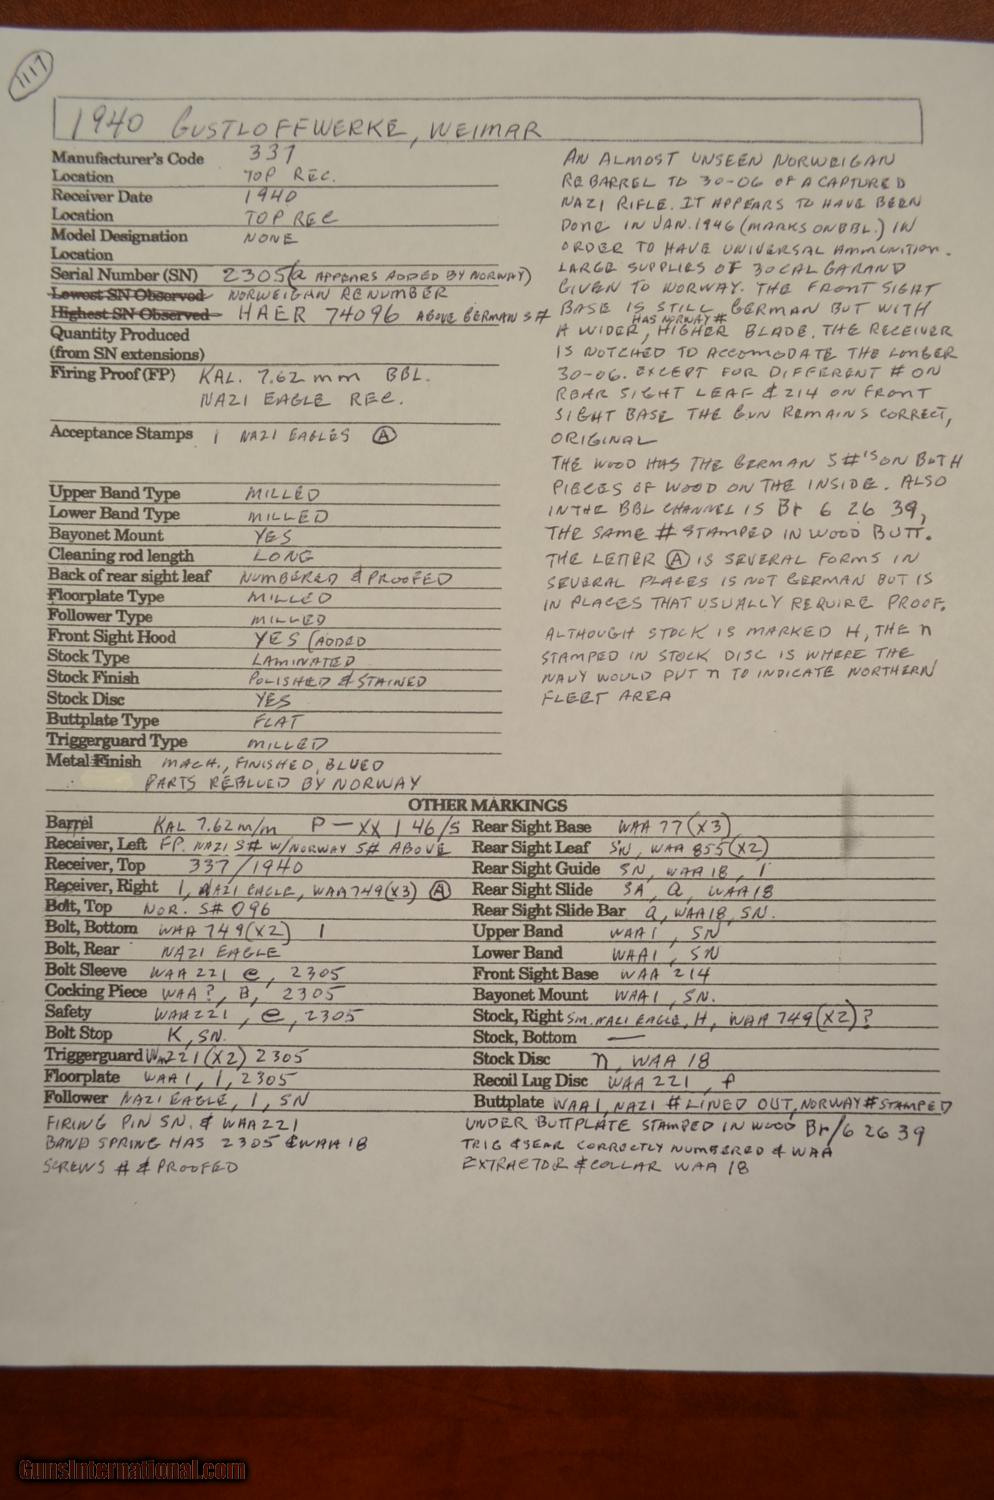 1117
1940 GUSTLOFFWERKE, WEIMAR
Manufacturer's Code 337
Location TOP REC.
Receiver Date 1940
Location TOP REC
Model Designation NONE
Location
Serial Number (SN) 2305 (a APPEARS ADDED BY NORWAY)
Lowest SN Observed NORWEIGAN RENUMBER
Highest SN Observed HAER 74096 ABOVE GERMAN S#
Quantity Produced
(from SN extensions)
Firing Proof (FP) KAL. 7.62 mm BBL.
NAZI EAGLE REC.
Acceptance Stamps 1 NAZI EAGLES A
Upper Band Type MILLED
Lower Band Type MILLED
Bayonet Mount YES
Cleaning rod length LONG
Back of rear sight leaf NUMBERED & PROOFED
Floorplate Type MILLED
Follower Type MILLED
Front Sight Hood YES (ADDED
Stock Type LAMINATED
Stock Finish POLISHED & STAINED
Stock Disc YES
Buttplate Type FLAT
Triggerguard Type MILLED
Metal Finish MACH., FINISHED, BLUED
PARTS REBLUED BY NORWAY
AN ALMOST UNSEEN NORWEIGAN
REBARREL TO 30-06 OF A CAPTURED
NAZI RIFLE. IT APPEARS TO HAVE BEEN
DONE IN JAN. 1946 (MARKS ON BBL.) IN
ORDER TO HAVE UNIVERSAL AMMUNITION.
LARGE SUPPLIES OF 30CAL GARAND
GIVEN TO NORWAY. THE FRONT SIGHT
BASE IS STILL GERMAN BUT WITH
HAS NORWAY #
A WIDER, HIGHER BLADE. THE RECEIVER
IS NOTCHED TO ACCOMODATE THE LONGER
30-06. EXCEPT FOR DIFFERENT # ON
REAR SIGHT LEAF & 214 ON FRONT
SIGHT BASE THE GUN REMAINS CORRECT,
ORIGINAL
THE WOOD HAS THE GERMAN S#'S ON BOTH
PIECES OF WOOD ON THE INSIDE. ALSO
IN THE BBL CHANNEL IS Br 6 26 39,
THE SAME # STAMPED IN WOOD BUTT.
THE LETTER A IS SEVERAL FORMS IN
SEVERAL PLACES IS NOT GERMAN BUT IS
IN PLACES THAT USUALLY REQUIRE PROOF.
ALTHOUGH STOCK IS MARKED H, THE n
STAMPED IN STOCK DISC IS WHERE THE
NAVY WOULD PUT n TO INDICATE NORTHERN
FLEET AREA
OTHER MARKINGS
Barrel KAL 7.62 m/m P-XX 1 46/S
Receiver, Left FP. NAZI S# W/NORWAY S# ABOVE
Receiver, Top 337/1940
Receiver, Right 1, NAZI EAGLE, WAA749 (X3) A
Bolt, Top NOR. S# 096
Bolt, Bottom WAA 749 (X2) 1
Bolt, Rear NAZI EAGLE
Bolt Sleeve WAA 221 e, 2305
Cocking Piece WAA?, B, 2305
Safety WAA221, e, 2305
Bolt Stop K, SN.
Triggerguard WAA221 (X2) 2305
Floorplate WAA1, 1, 2305
Follower NAZI EAGLE, 1, SN
FIRING PIN SN. & WAA221
BAND SPRING HAS 2305 & WAA 18
SCREWS # & PROOFED
Rear Sight Base WAA 77 (X3)
Rear Sight Leaf SN, WAA 855 (X2)
Rear Sight Guide SN, WAA 18, 1
Rear Sight Slide SA, a, WAA18
Rear Sight Slide Bar a, WAA18, SN.
Upper Band WAA1, SN
Lower Band WAA1, SN
Front Sight Base WAA 214
Bayonet Mount WAA1, SN.
Stock, Right SM. NAZI EAGLE, H, WAA 749 (X2)?
Stock, Bottom —
Stock Disc n, WAA 18
Recoil Lug Disc WAA 221, f
Buttplate WAA1, NAZI # LINED OUT, NORWAY # STAMPED
UNDER BUTTPLATE STAMPED IN WOOD Br/6 26 39
TRIG & SEAR CORRECTLY NUMBERED & WAA
EXTRACTOR & COLLAR WAA 18
GunsInternational.com